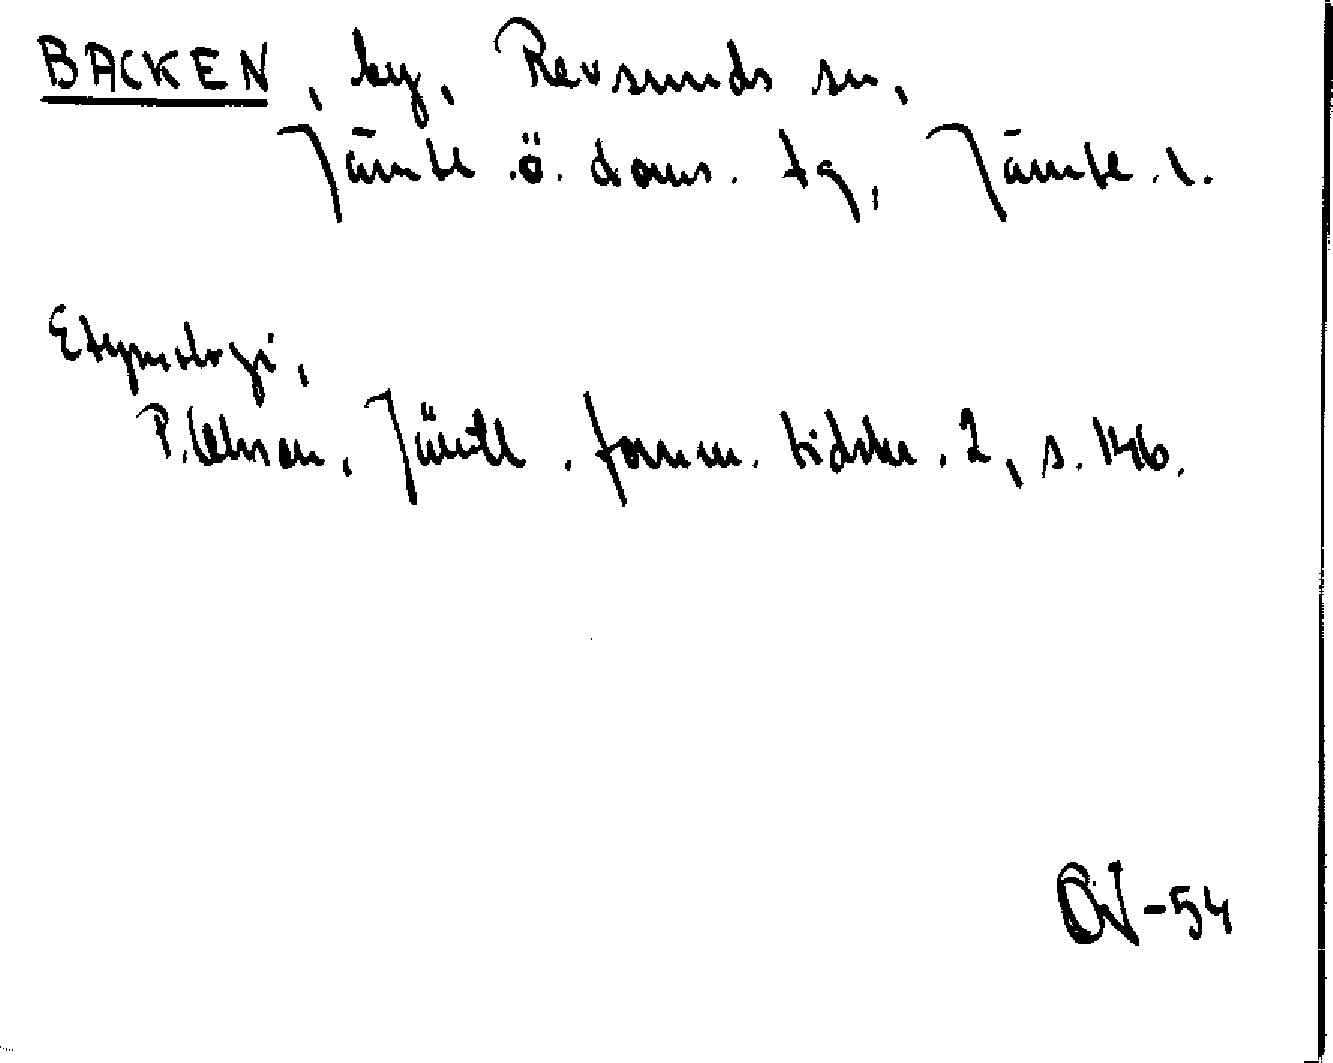 BACKEN, by, Revsunds sn,
Jämtl. ö. doms. tg, Jämtl. l.
Etymologi,
P. Olsson, Jämtl. fornm. tidskr. 2, s. 146.
-54